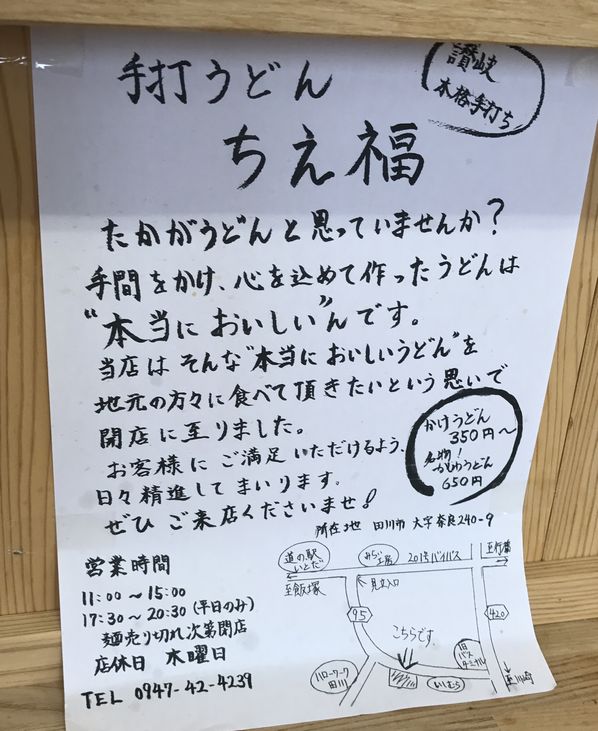 讃岐
本格手打ち
手打うどん
ちえ福
たかがうどんと思っていませんか?
手間をかけ、心を込めて作ったうどんは
“本当においしい”んです。
当店はそんな“本当においしいうどん”を
地元の方々に食べて頂きたいという思いで
開店に至りました。
お客様にご満足いただけるよう、
日々精進してまいります。
ぜひご来店くださいませ!
かけうどん
350円〜
名物!
かしわうどん
650円
所在地 田川市 大字奈良240-9
営業時間
11:00〜15:00
17:30〜20:30(平日のみ)
麺売り切れ次第閉店
店休日 木曜日
TEL 0947-42-4239
道の駅
いとだ
至飯塚
みらい
工房
201号バイパス
至行橋
見立入口
95
420
こちらです
旧
バス
ターミナル
ハローワーク
田川
いしむら
至川崎